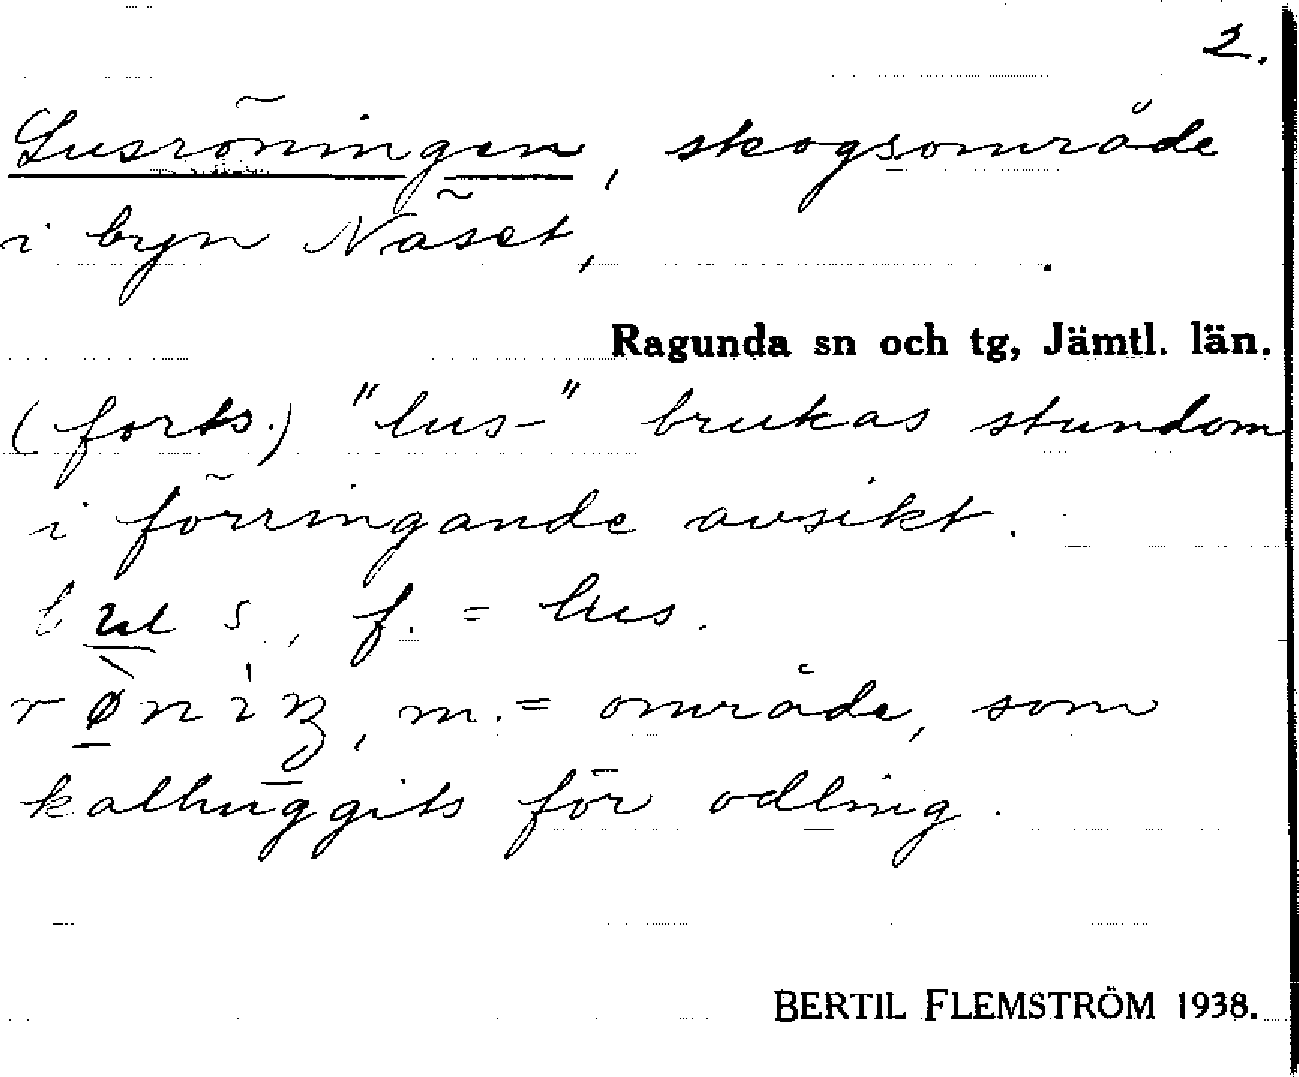 2.
Lusröningen, skogsområde
i byn Näset,
Ragunda sn och tg, Jämtl. län.
(forts.) "lus-" brukas stundom
i förringande avsikt.
lus, f. = lus.
rø̀niŋ, m. = område, som
kalhuggits för odling.
BERTIL FLEMSTRÖM 1938.